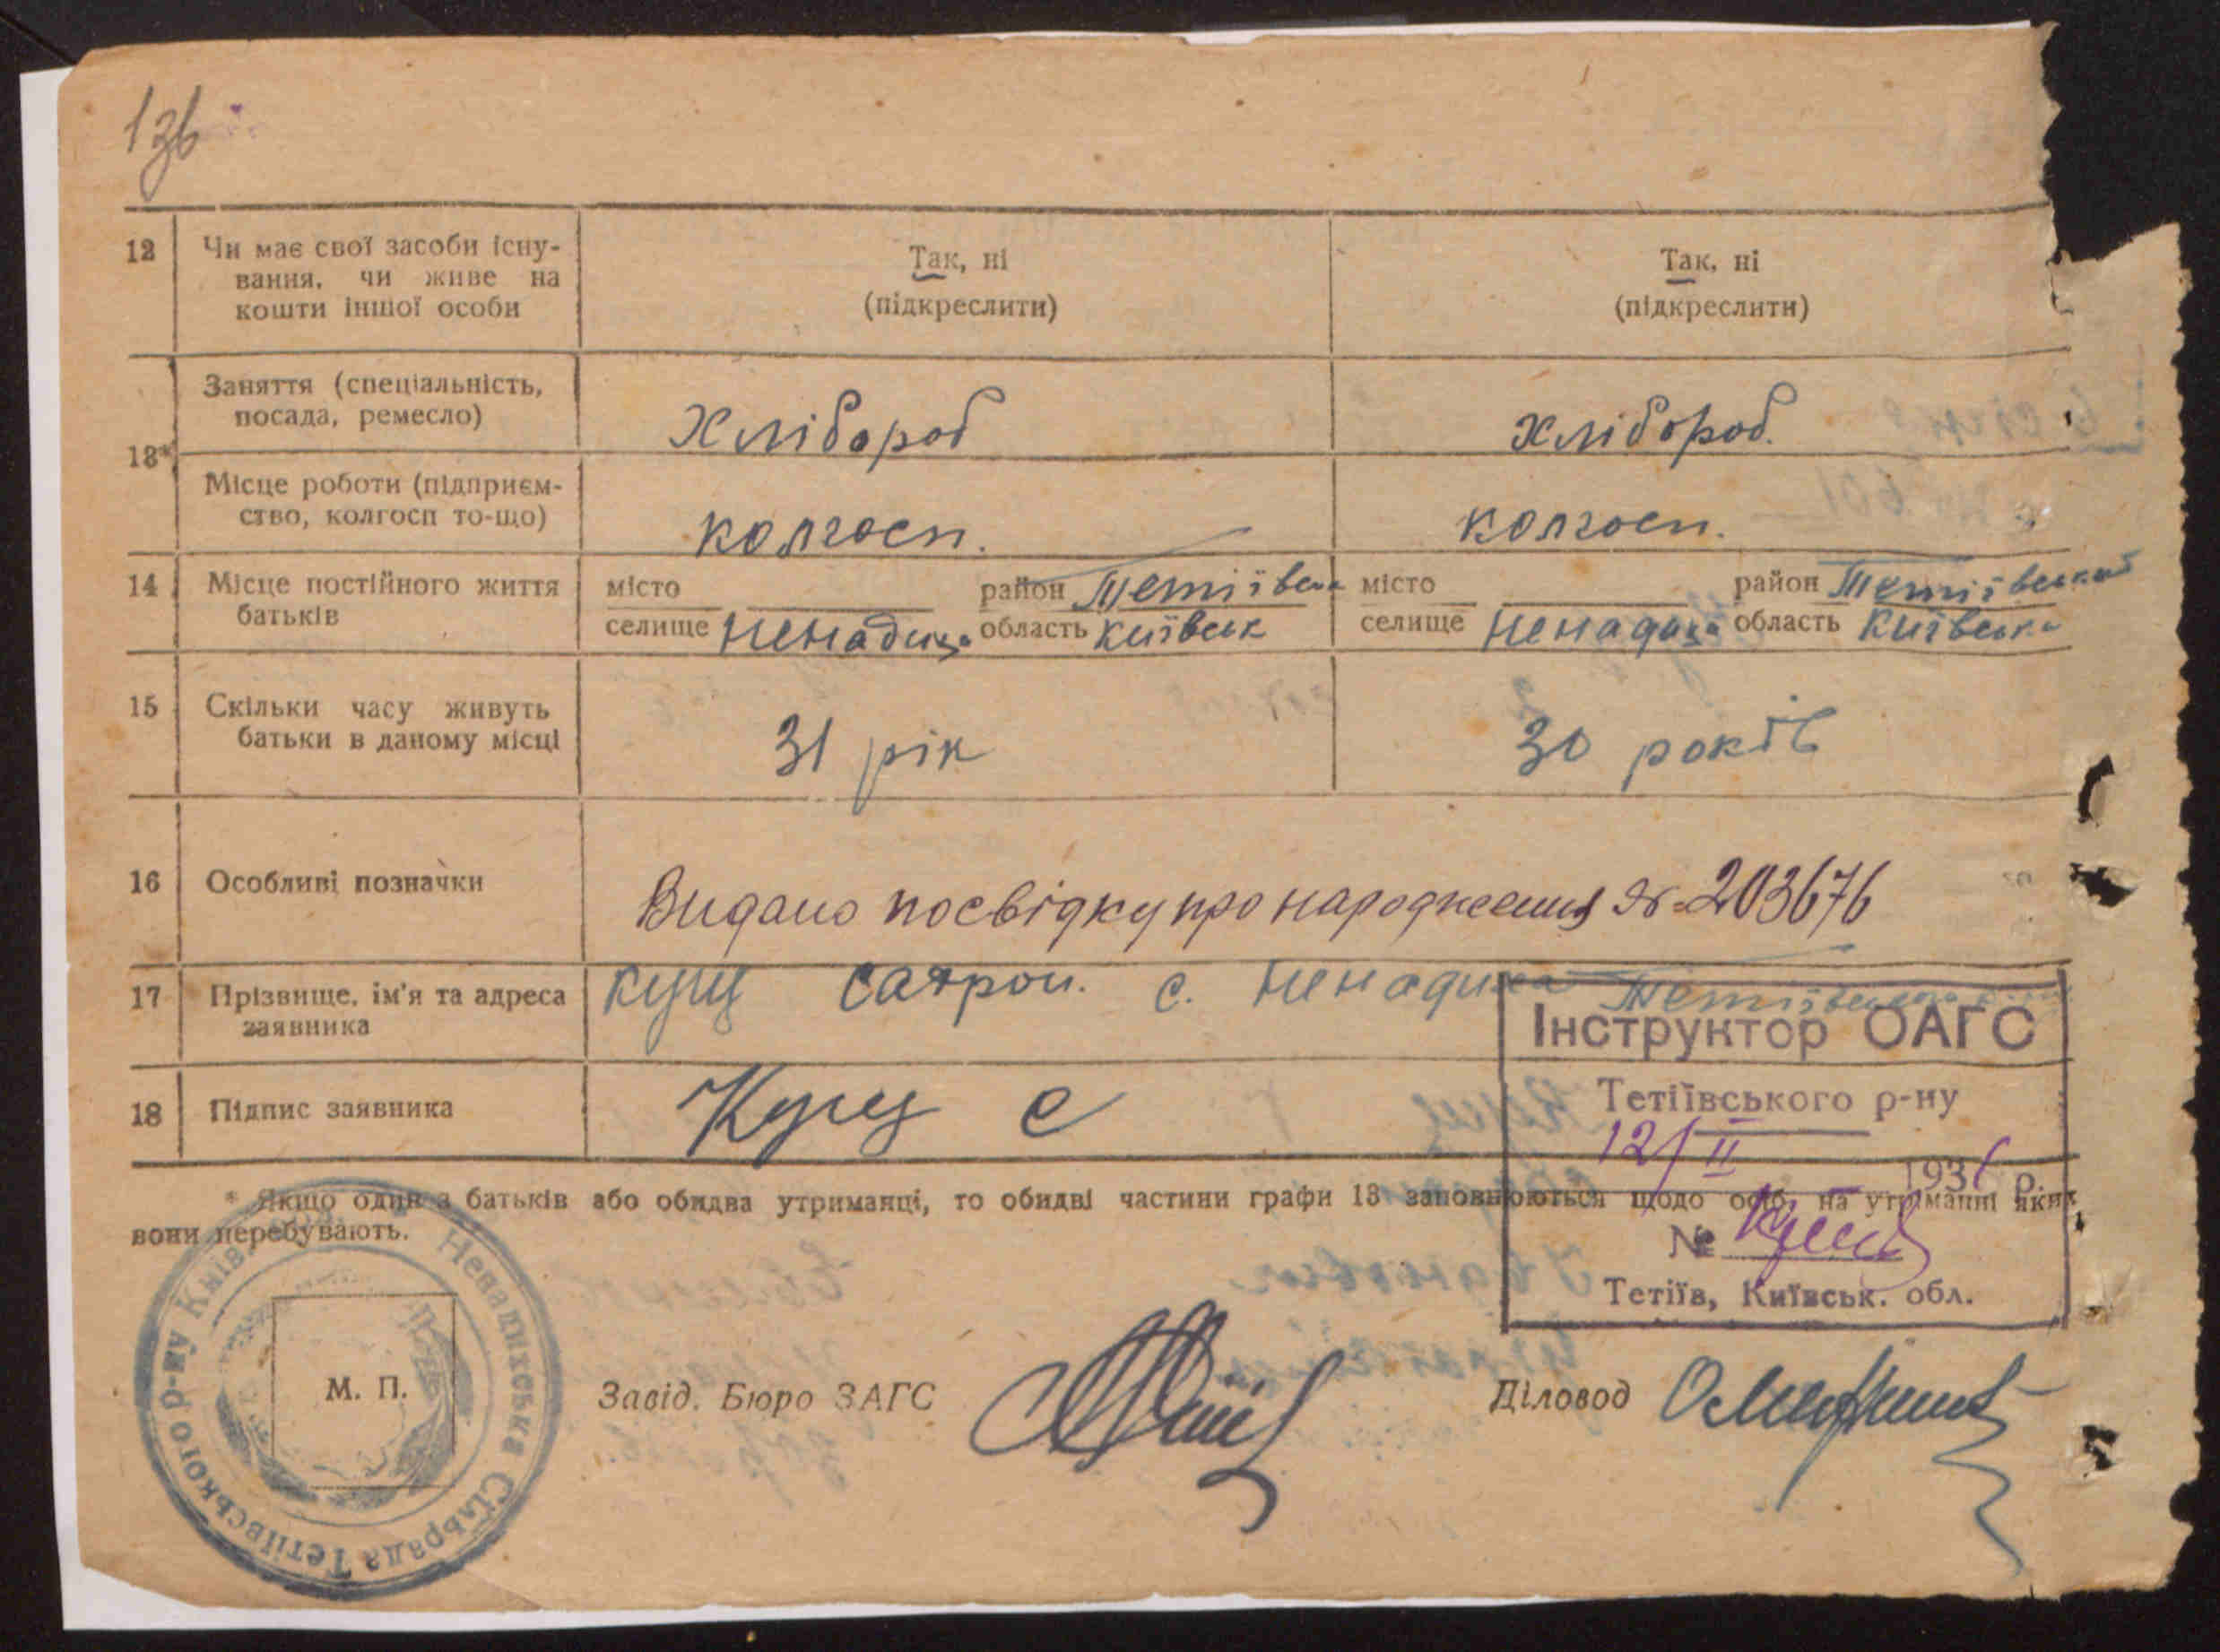 136
12 Чи має свої засоби існу-
вання, чи живе на
кошти іншої особи
Так, ні
(підкреслити)
Так, ні
(підкреслити)
13*
Заняття (спеціальність,
посада, ремесло)
Хлібороб
Хлібороб.
Місце роботи (підприєм-
ство, колгосп то-що)
колгосп.
колгосп.
14 Місце постійного життя
батьків
місто район Тетіївськ
селище Ненадиха область Київськ
місто район Тетіївський
селище Ненадиха область Київська
15 Скільки часу живуть
батьки в даному місці
31 рік
30 років
16 Особливі позначки
Видано посвідку про народження № 203676
17 Прізвище, ім'я та адреса
заявника
Кущ Сафрон. с. Ненадиха Тетіївського
18 Підпис заявника
Кущ С
Інструктор ОАГС
Тетіївського р-ну
12/II 193 р.
№
Тетіїв, Київськ. обл.
* Якщо один з батьків або обидва утриманці, то обидві частини графи 13 заповнюються щодо осіб, на утриманні яких
вони перебувають.
Ненадихська Сільрада Тетіївського р-ну Київ
М. П.
Завід. Бюро ЗАГС
Діловод